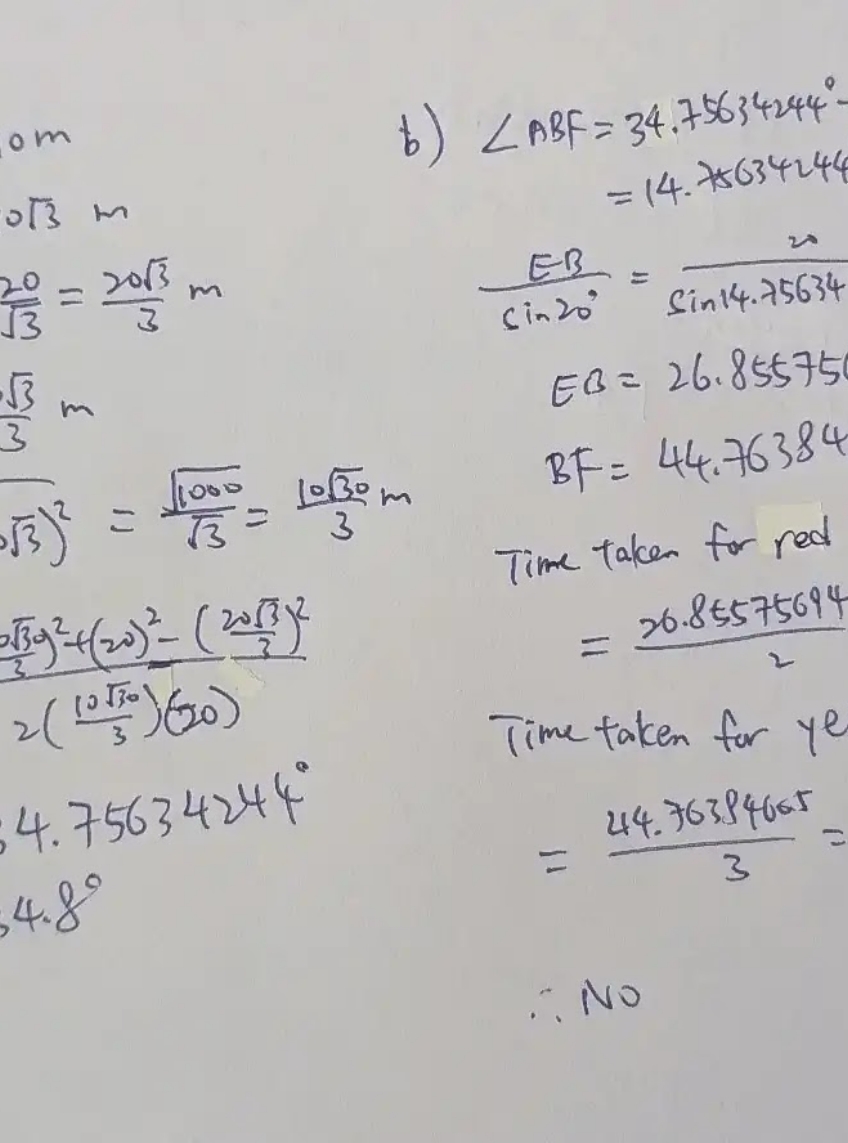 0m
0√3 m
20/√3 = 20√3/3 m
√3/3 m
√3)² = √1000/√3 = 10√30/3 m
√30/3)²+(20)²-(20√3/3)²
2(10√30/3)(20)
4.75634244°
4.8°
b) ∠ABF = 34.75634244°-
= 14.75634244
EB/sin20° = 20/sin14.75634
EB = 26.85575
BF = 44.76384
Time taken for red
= 26.85575694/2
Time taken for ye
= 44.76384665/3 =
∴ NO